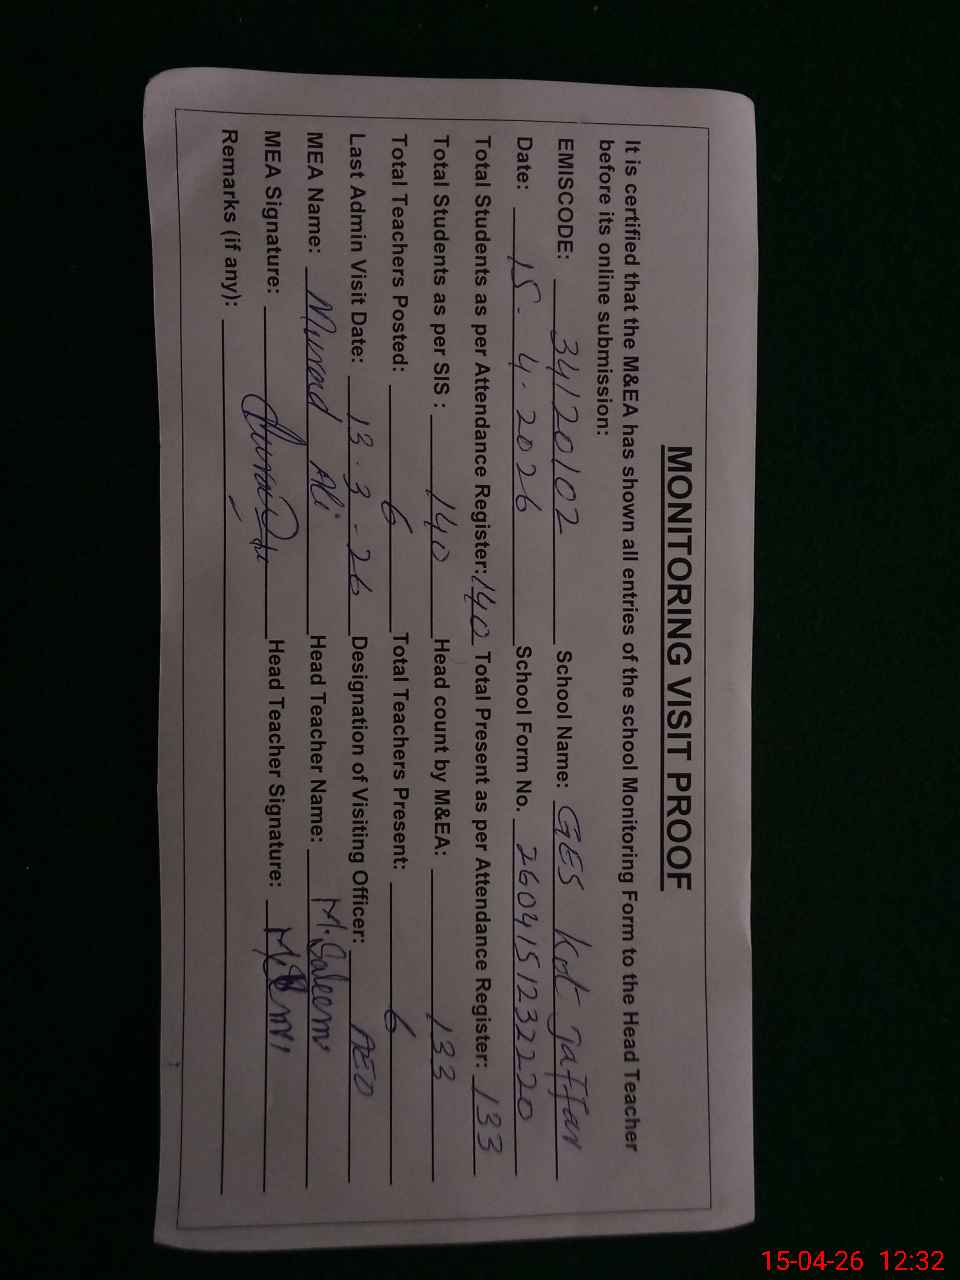 MONITORING VISIT PROOF
It is certified that the M&EA has shown all entries of the school Monitoring Form to the Head Teacher
before its online submission:
EMISCODE: 34120102 School Name: GES Kot Jaffar
Date: 15-4-2026 School Form No. 2604151232220
Total Students as per Attendance Register: 140 Total Present as per Attendance Register: 133
Total Students as per SIS : 140 Head count by M&EA: 133
Total Teachers Posted: 6 Total Teachers Present: 6
Last Admin Visit Date: 13-3-26 Designation of Visiting Officer: AEO
MEA Name: Murad Ali Head Teacher Name: M. Saleem
MEA Signature: Head Teacher Signature:
Remarks (if any):
15-04-26 12:32